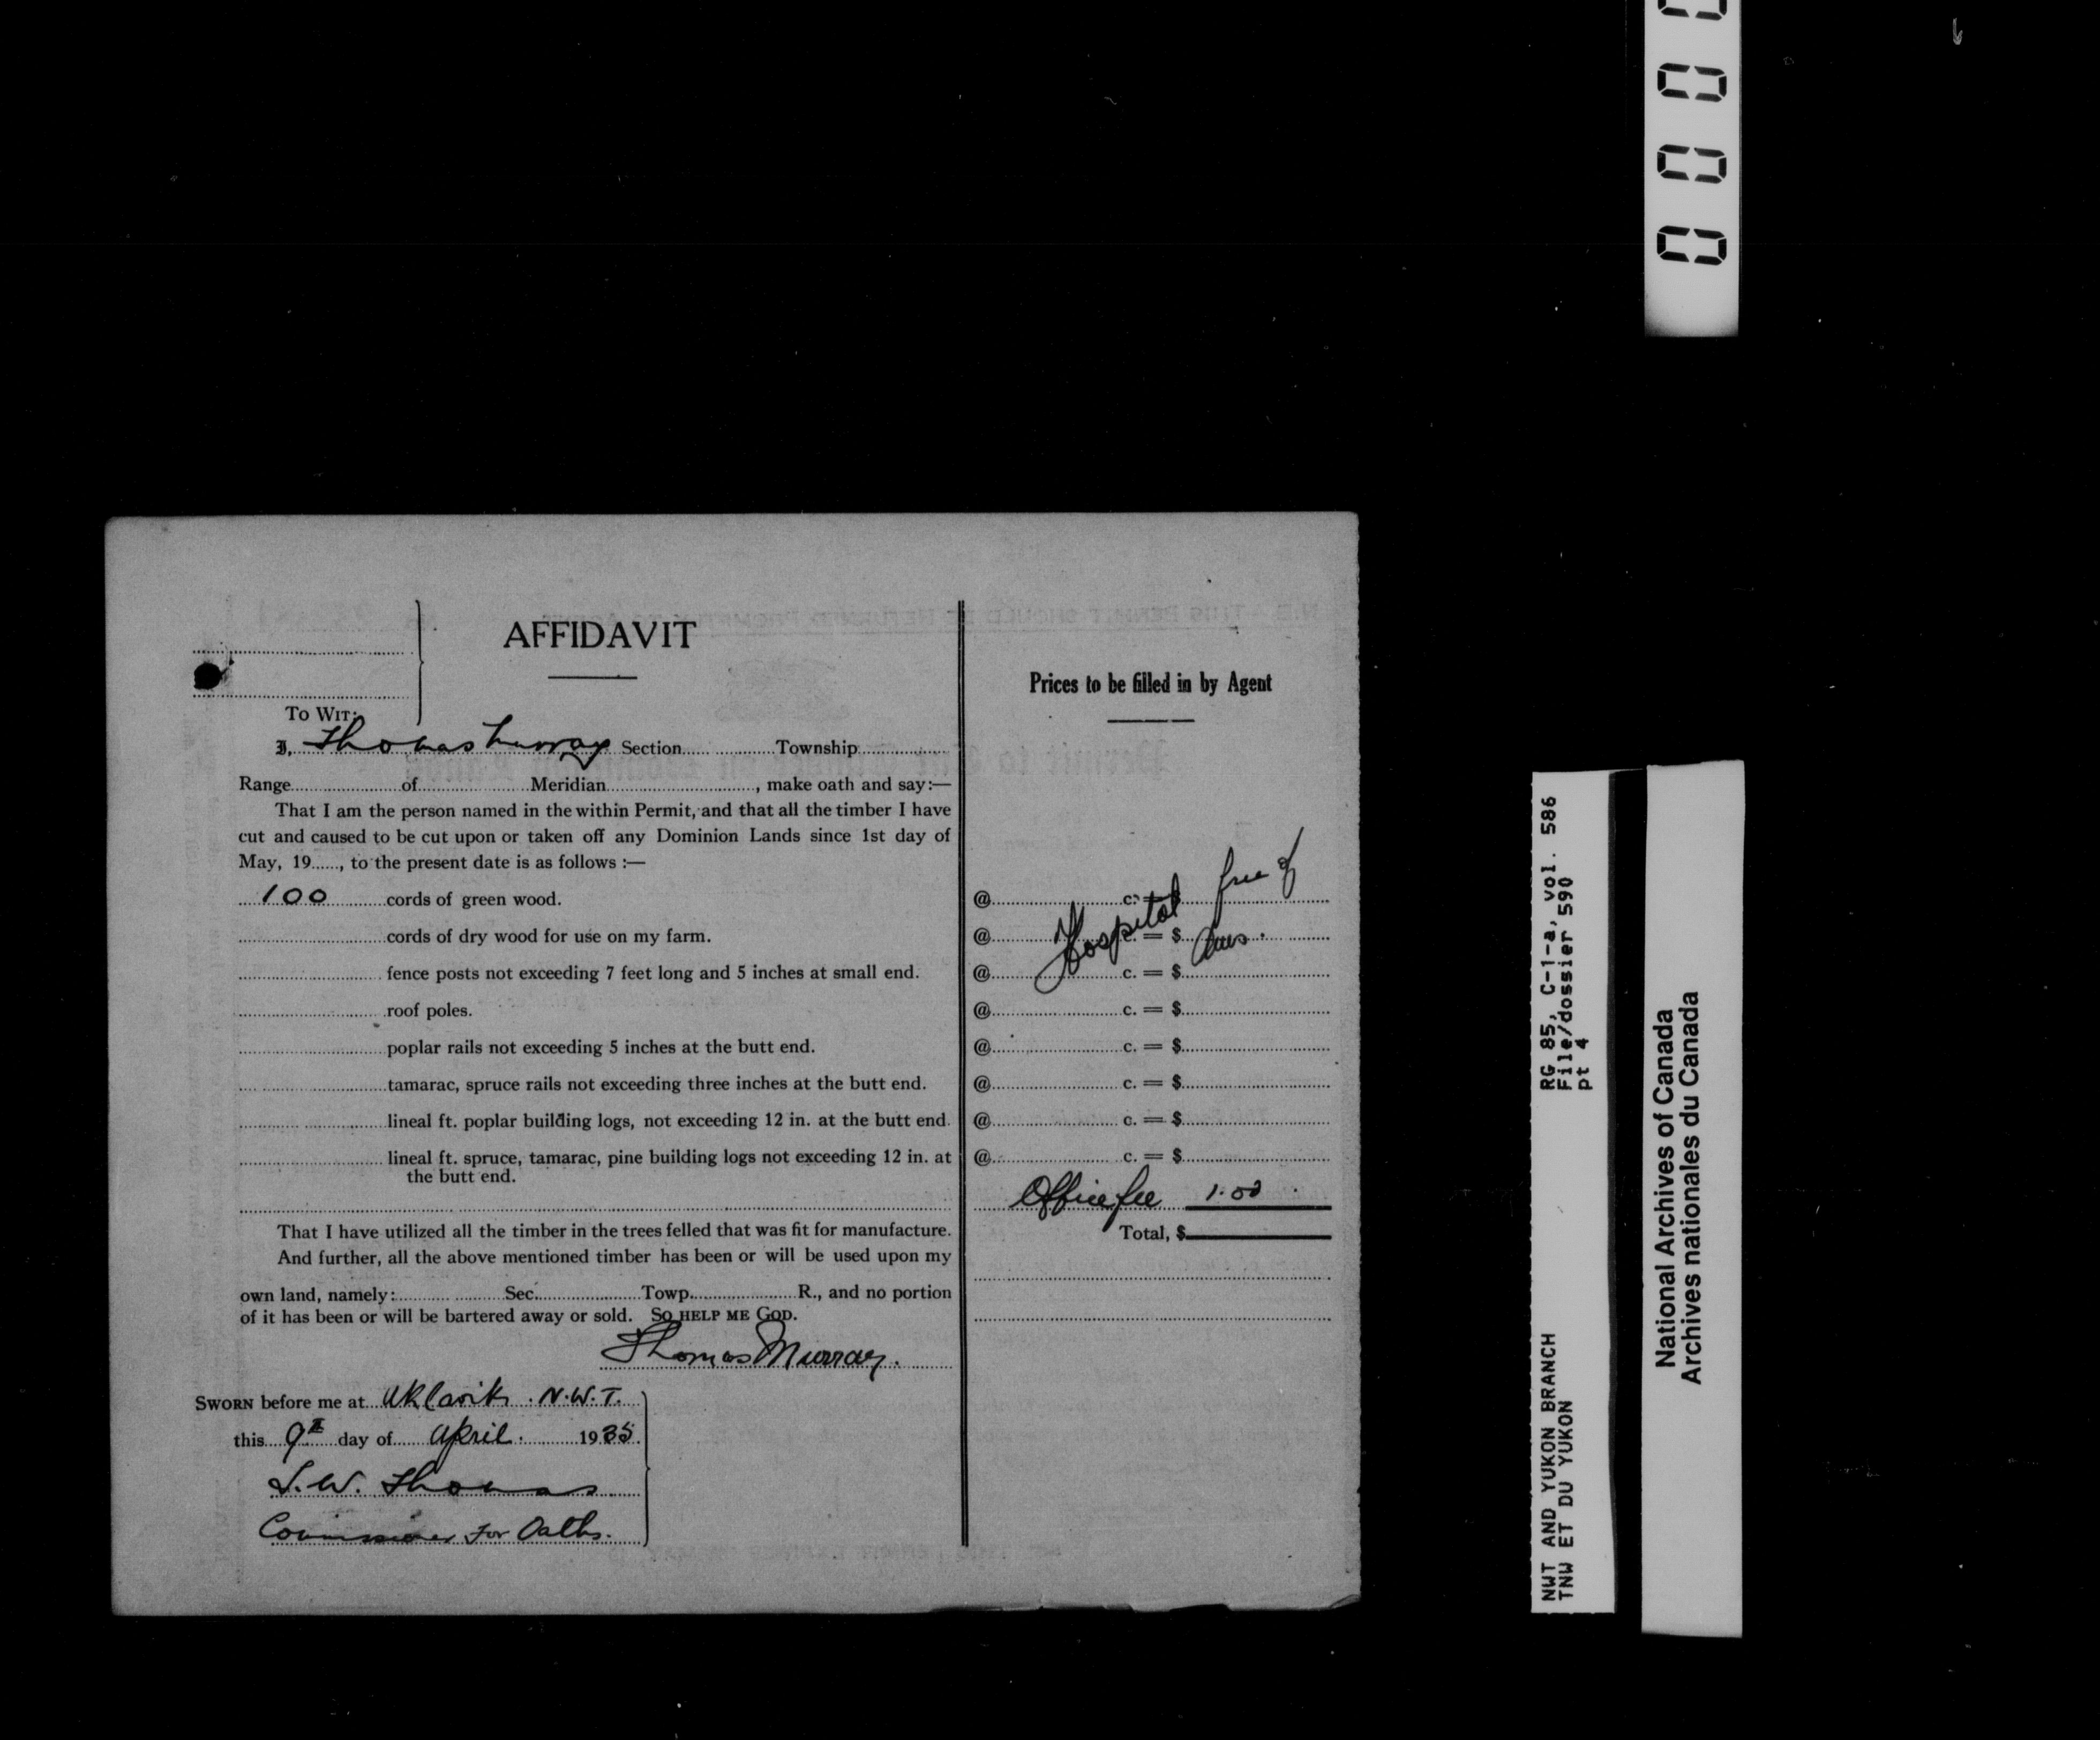 AFFIDAVIT
To Wit:
I, Thomas Murray Section.......... Township..........
Range..........of..........Meridian.........., make oath and say:—
That I am the person named in the within Permit, and that all the timber I have
cut and caused to be cut upon or taken off any Dominion Lands since 1st day of
May, 19......, to the present date is as follows :—
100 cords of green wood.
cords of dry wood for use on my farm.
fence posts not exceeding 7 feet long and 5 inches at small end.
roof poles.
poplar rails not exceeding 5 inches at the butt end.
tamarac, spruce rails not exceeding three inches at the butt end.
lineal ft. poplar building logs, not exceeding 12 in. at the butt end.
lineal ft. spruce, tamarac, pine building logs not exceeding 12 in. at
the butt end.
That I have utilized all the timber in the trees felled that was fit for manufacture.
And further, all the above mentioned timber has been or will be used upon my
own land, namely:..........Sec..........Towp..........R., and no portion
of it has been or will be bartered away or sold. So help me God.
Thomas Murray.
Sworn before me at Aklavik. N.W.T.
this 9th day of April. 1935.
S.W. Thomas
Commissioner for Oaths.
Prices to be filled in by Agent
@..........c. = $..........
@..........c. = $..........
@..........c. = $..........
Hospital free of
dues.
@..........c. = $..........
@..........c. = $..........
@..........c. = $..........
@..........c. = $..........
@..........c. = $..........
Office fee 1.00
Total, $
0 0 0 0
RG 85, C-1-a, vol. 586
File/dossier 590
pt 4
NWT AND YUKON BRANCH
TNW ET DU YUKON
National Archives of Canada
Archives nationales du Canada